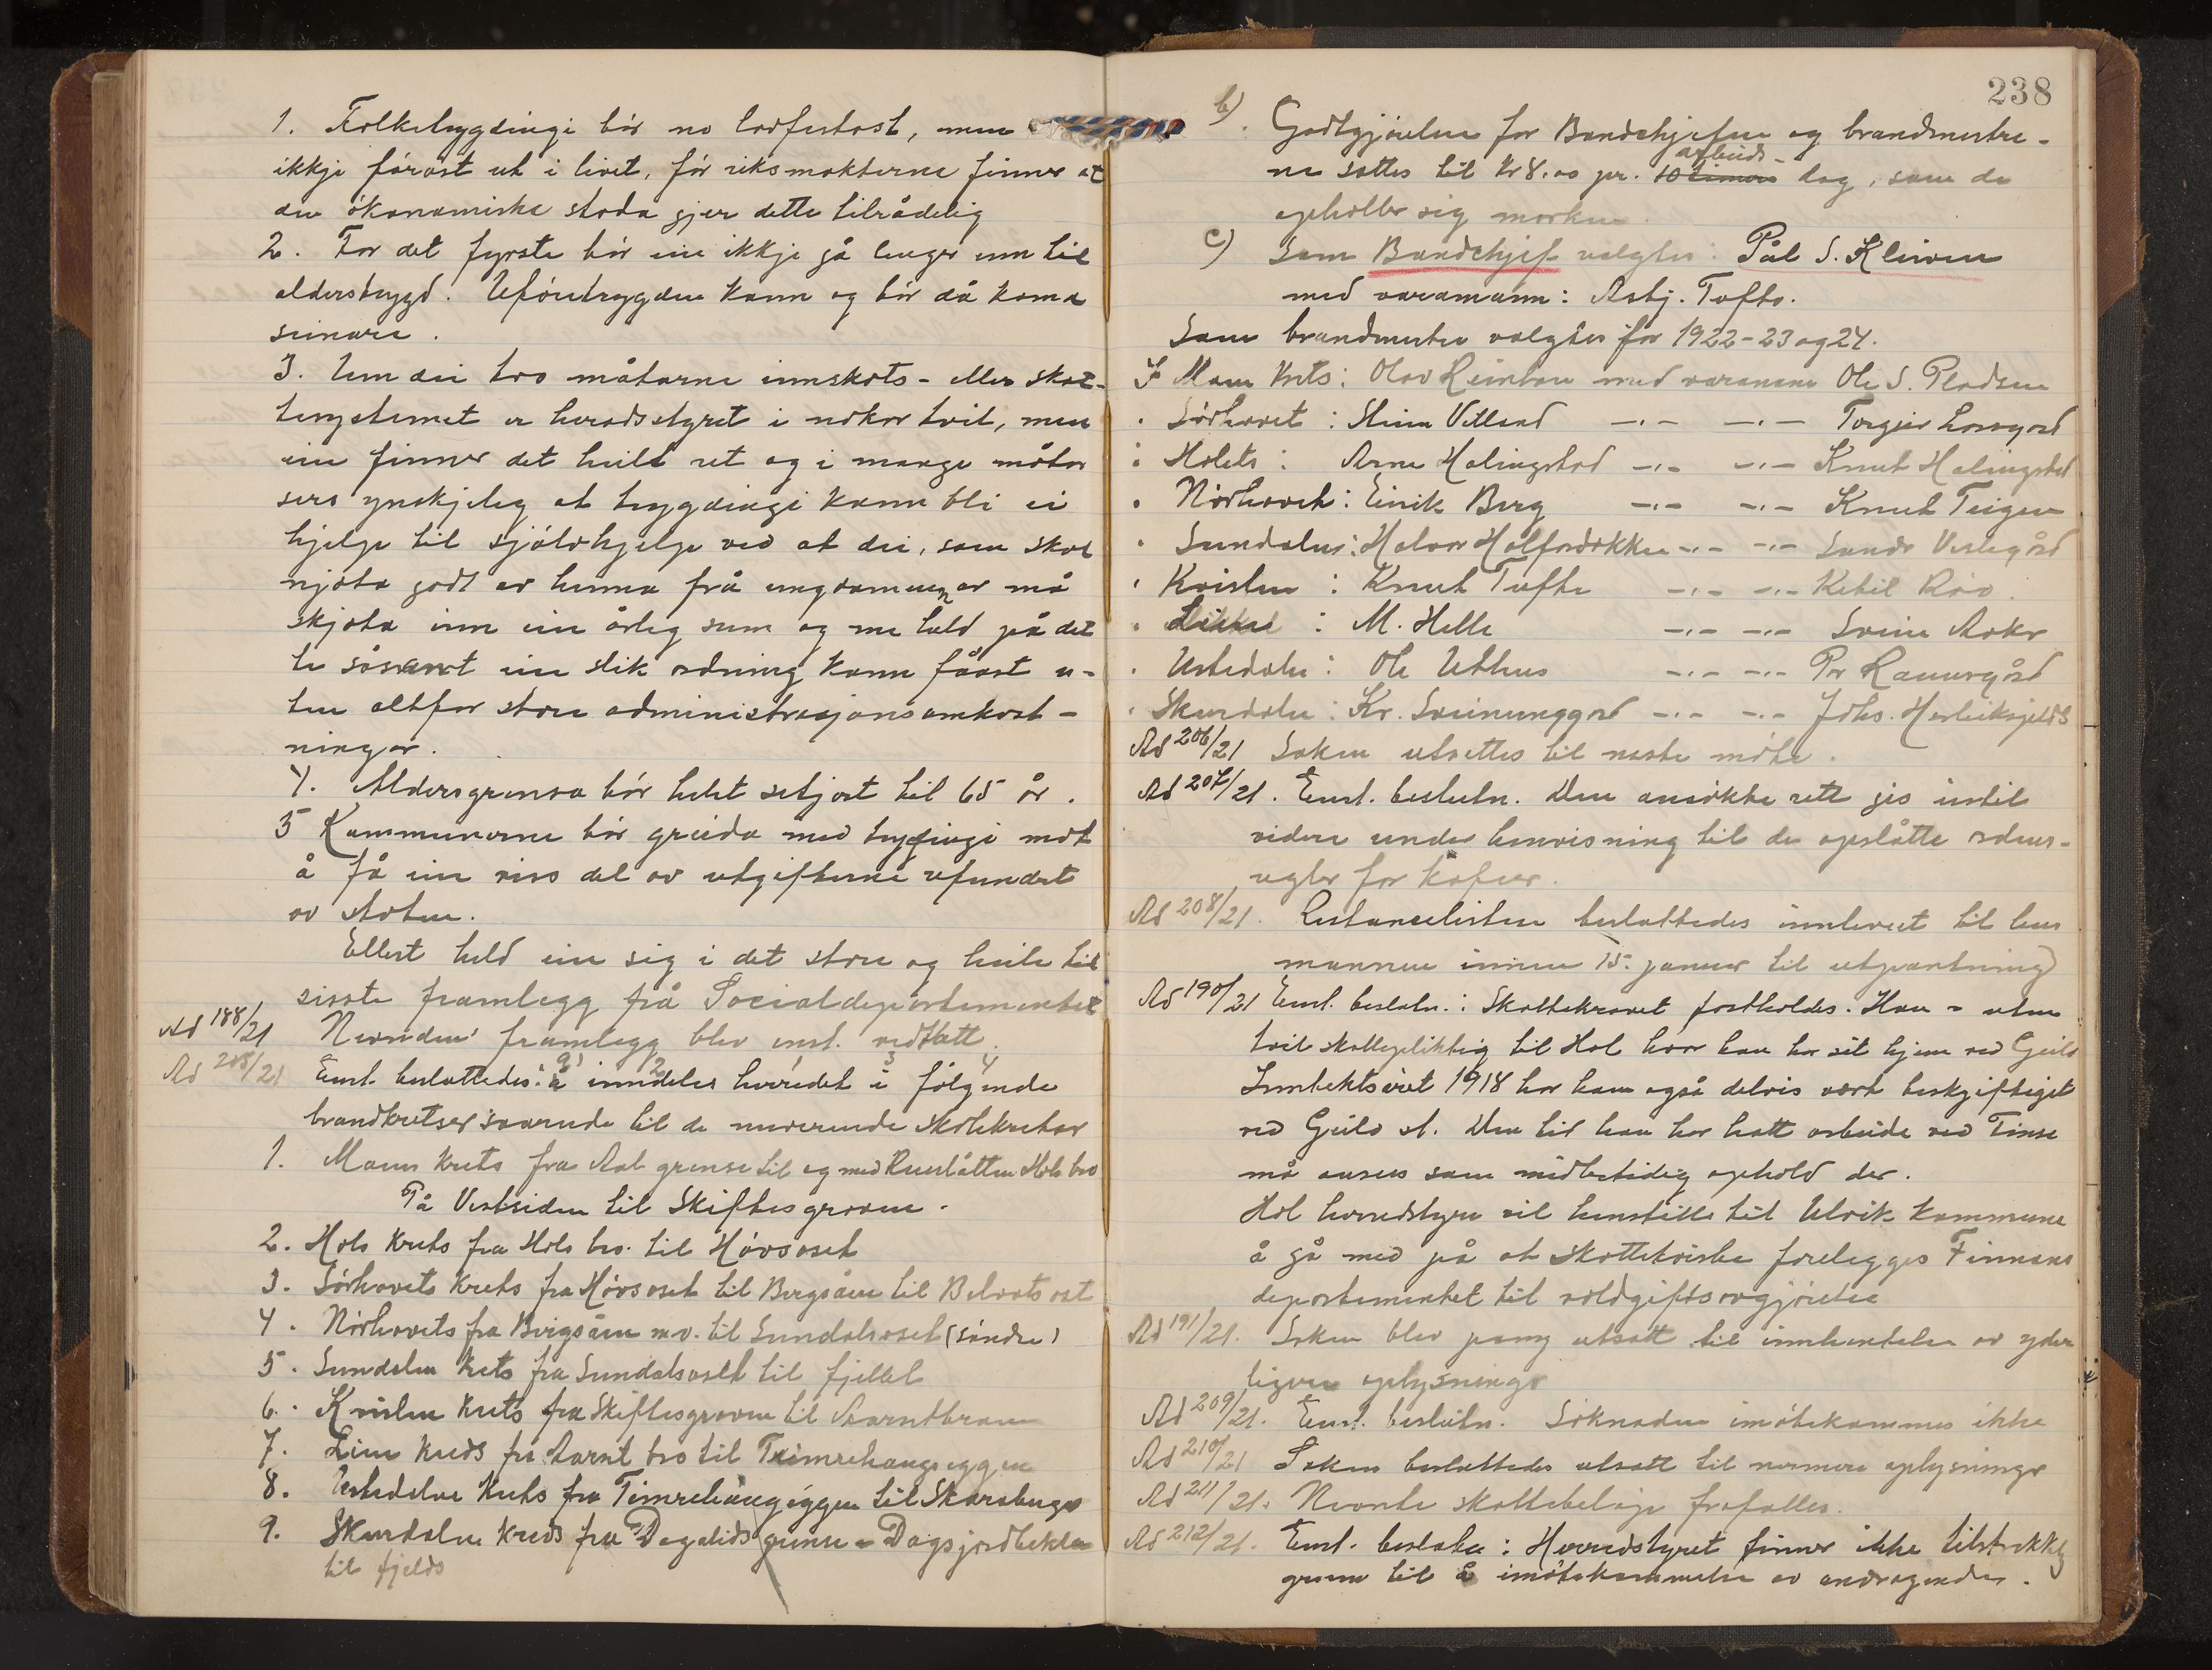 1. Folketrygdingi bör no lovfestast, men
ikkje förast ut i livet, för riksmakterne finner at
den ökonomiske stoda gjer dette tilrådelig
2. For det fyrste bör ein ikkje gå lenger enn til
alderstrygd. Uföretrygden kann og bör då koma
seinare.
3. Um dei tvo måtarne innskots- eller skat-
tesystemet er heradsstyret i nokor tvil, men
ein finner det heilt ret og i mange måtar
sers ynskjeleg at trygdingi kann bli ei
hjelp til sjölvhjelp ved at dei, som skal
njota godt av henna frå ungdomen av må
skjota inn ein årleg sum og me held på det
te såsant ein slik ordning kann fåast u-
ten altfor store administrasjonsomkost-
ningar.
4. Aldersgrensa bör helst setjast til 65 år.
5 Kommunerne bör greida med trygdingi mot
å få ein viss del av utgifterne refundert
av staten.
Ellest held ein sig i det store og heile til
sisste framlegg frå Socialdepartementet
Ad 188/21 Nemnden's framlegg blev enst. vedtatt.
Ad 205/21 Enst. besluttedes: a) å inndeles herredet i fölgende
brandkretser svarende til de nuverende skolekretser
1. Moen krets fra Aal grense til og med Hols bro
På Vestsiden til Skiftesgroven.
2. Hols krets fra Hols bro. til Hövsoset
3. Sörhovets krets fra Hövsoset til Bergsåen til
4. Nörhovets fra Bergsåen m.v. til Sundalsoset (söndre)
5. Sundalen krets fra Sundalsoset til fjellet
6. Kvislen krets fra Skiftesgroven til
7. Lien kreds fra bro til Timrehaugeggen
8. Ustedalen krets fra Timrehaugeggen til Skarsberge
9. Skurdalen kreds fra Dagalids grense - Dagsjordbekken
til fjelds
238
b) Godtgjörelsen for Bandchjefen og brandmestre-
ne sattes til kr 8.00 pr. 10 timers arbeids- dag, som de
opholder sig marken.
c) Som Bandchjef valgtes: Pål S. Kleiven
med varamann: Asbj. Tufto.
Som brandmestre valgtes for 1922-23 og 24.
I Moen krets: Olav Reinton med varamann Ole S. Pladsen
" Sörhovet: Stein Villand -"- -"- Torgeir Larsgard
" Holets: Arne Halingstad -"- -"- Knut Halingstad
" Nörhovet: Eirik Berg -"- -"- Knut Teigen
" Sundalen: Halvor -"- -"- Sander Vestegård
" Kvislen: Knut Tufte -"- -"- Ketil Röo.
" : M. Helle -"- -"- Svein Aaker
" Ustedalen: Ole Uthus -"- -"- Per Ramsgård
" Skurdalen: Kr. Sveinunggard -"- -"- Johs.
Ad 206/21 Saken utsettes til neste möte.
Ad 207/21. Enst. besluttn. Den ansökte rett gis intil
videre under henvisning til de opslåtte ordens-
regler for kafeer.
Ad 208/21. Restanselisten besluttedes innlevert til lens
mannen innen 15. januar til utpantning
Ad 190/21 Enst. beslutn.: Skattekravet fastholdes. Han er uten
tvil skattepliktig til Hol hvor han har sit hjem ved Geilo
Inntektsåret 1918 har han også delvis vært beskjeftiget
ved Geilo st. Den tid han har hatt arbeide ved Finse
må anses som midlertidig ophold der.
Hol herredstyre vil henstille til Ulvik kommune
å gå med på at skattetvisten forelegges Finnans
departementet til voldgiftsavgjörelse
Ad 191/21. Saken blev påny utsatt til innhentelse av yder
ligere oplysninger
Ad 209/21. Enst. beslutn. Söknaden imötekommes ikke
Ad 210/21 Saken besluttedes utsatt til nermere oplysninger
Ad 211/21. Nevnte skattebelöp frafalles.
Ad 212/21. Enst. beslutn: Herredstyret finner ikke tilstrekkelig
grunn til å imötekommelse av andragendet.